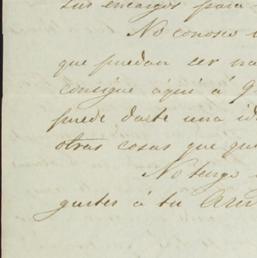 sus encargos para
No conosco
que puedan ser
consigue aqui á
puede darte una id
otras cosas que que
No tengo
gustes á tu